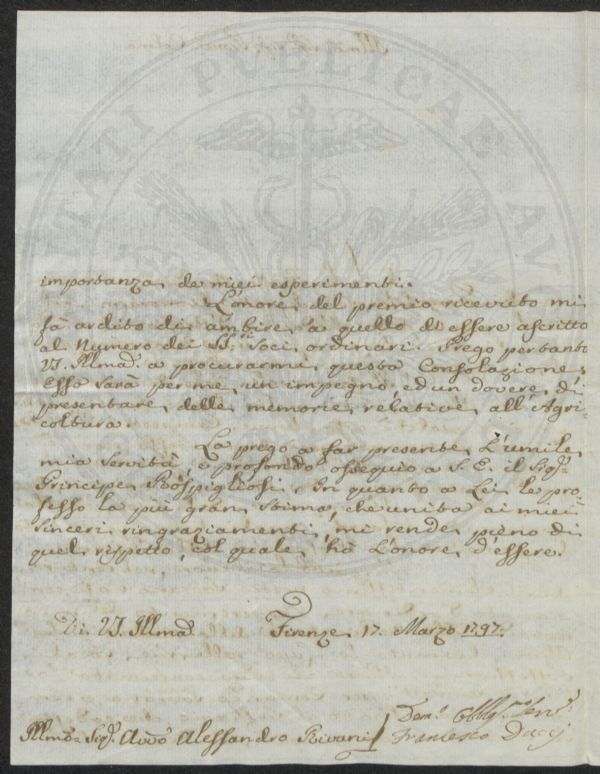 importanza de miei esperimenti.
L'onore del premio ricevuto mi
fà ardito di ambire a quello di essere ascritto
al Numero dei SS:ri Soci ordinari. Prego pertanto
VS. Illma a procurarmi questa Consolazione,
Essa sarà per me un impegno, ed un dovere di
presentare delle memorie relative all'Agri-
coltura.
La prego a far presente L'umile
mia servitù, e profondo ossequio a S. E. il Sigr
Principe Rospigliosi, In quanto a Lei le pro-
fesso la più gran stima, che unita ai miei
sinceri ringraziamenti, mi rende pieno di
quel rispetto, col quale hò L'onore d'essere.
Di VS. Illma Firenze 17. Marzo 1797.
Illmo Sigr Avvo Alessandro Rivani
Francesco